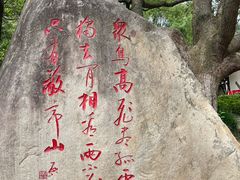 众鸟高飞尽孤云
独去闲相看两不厌
只有敬亭山